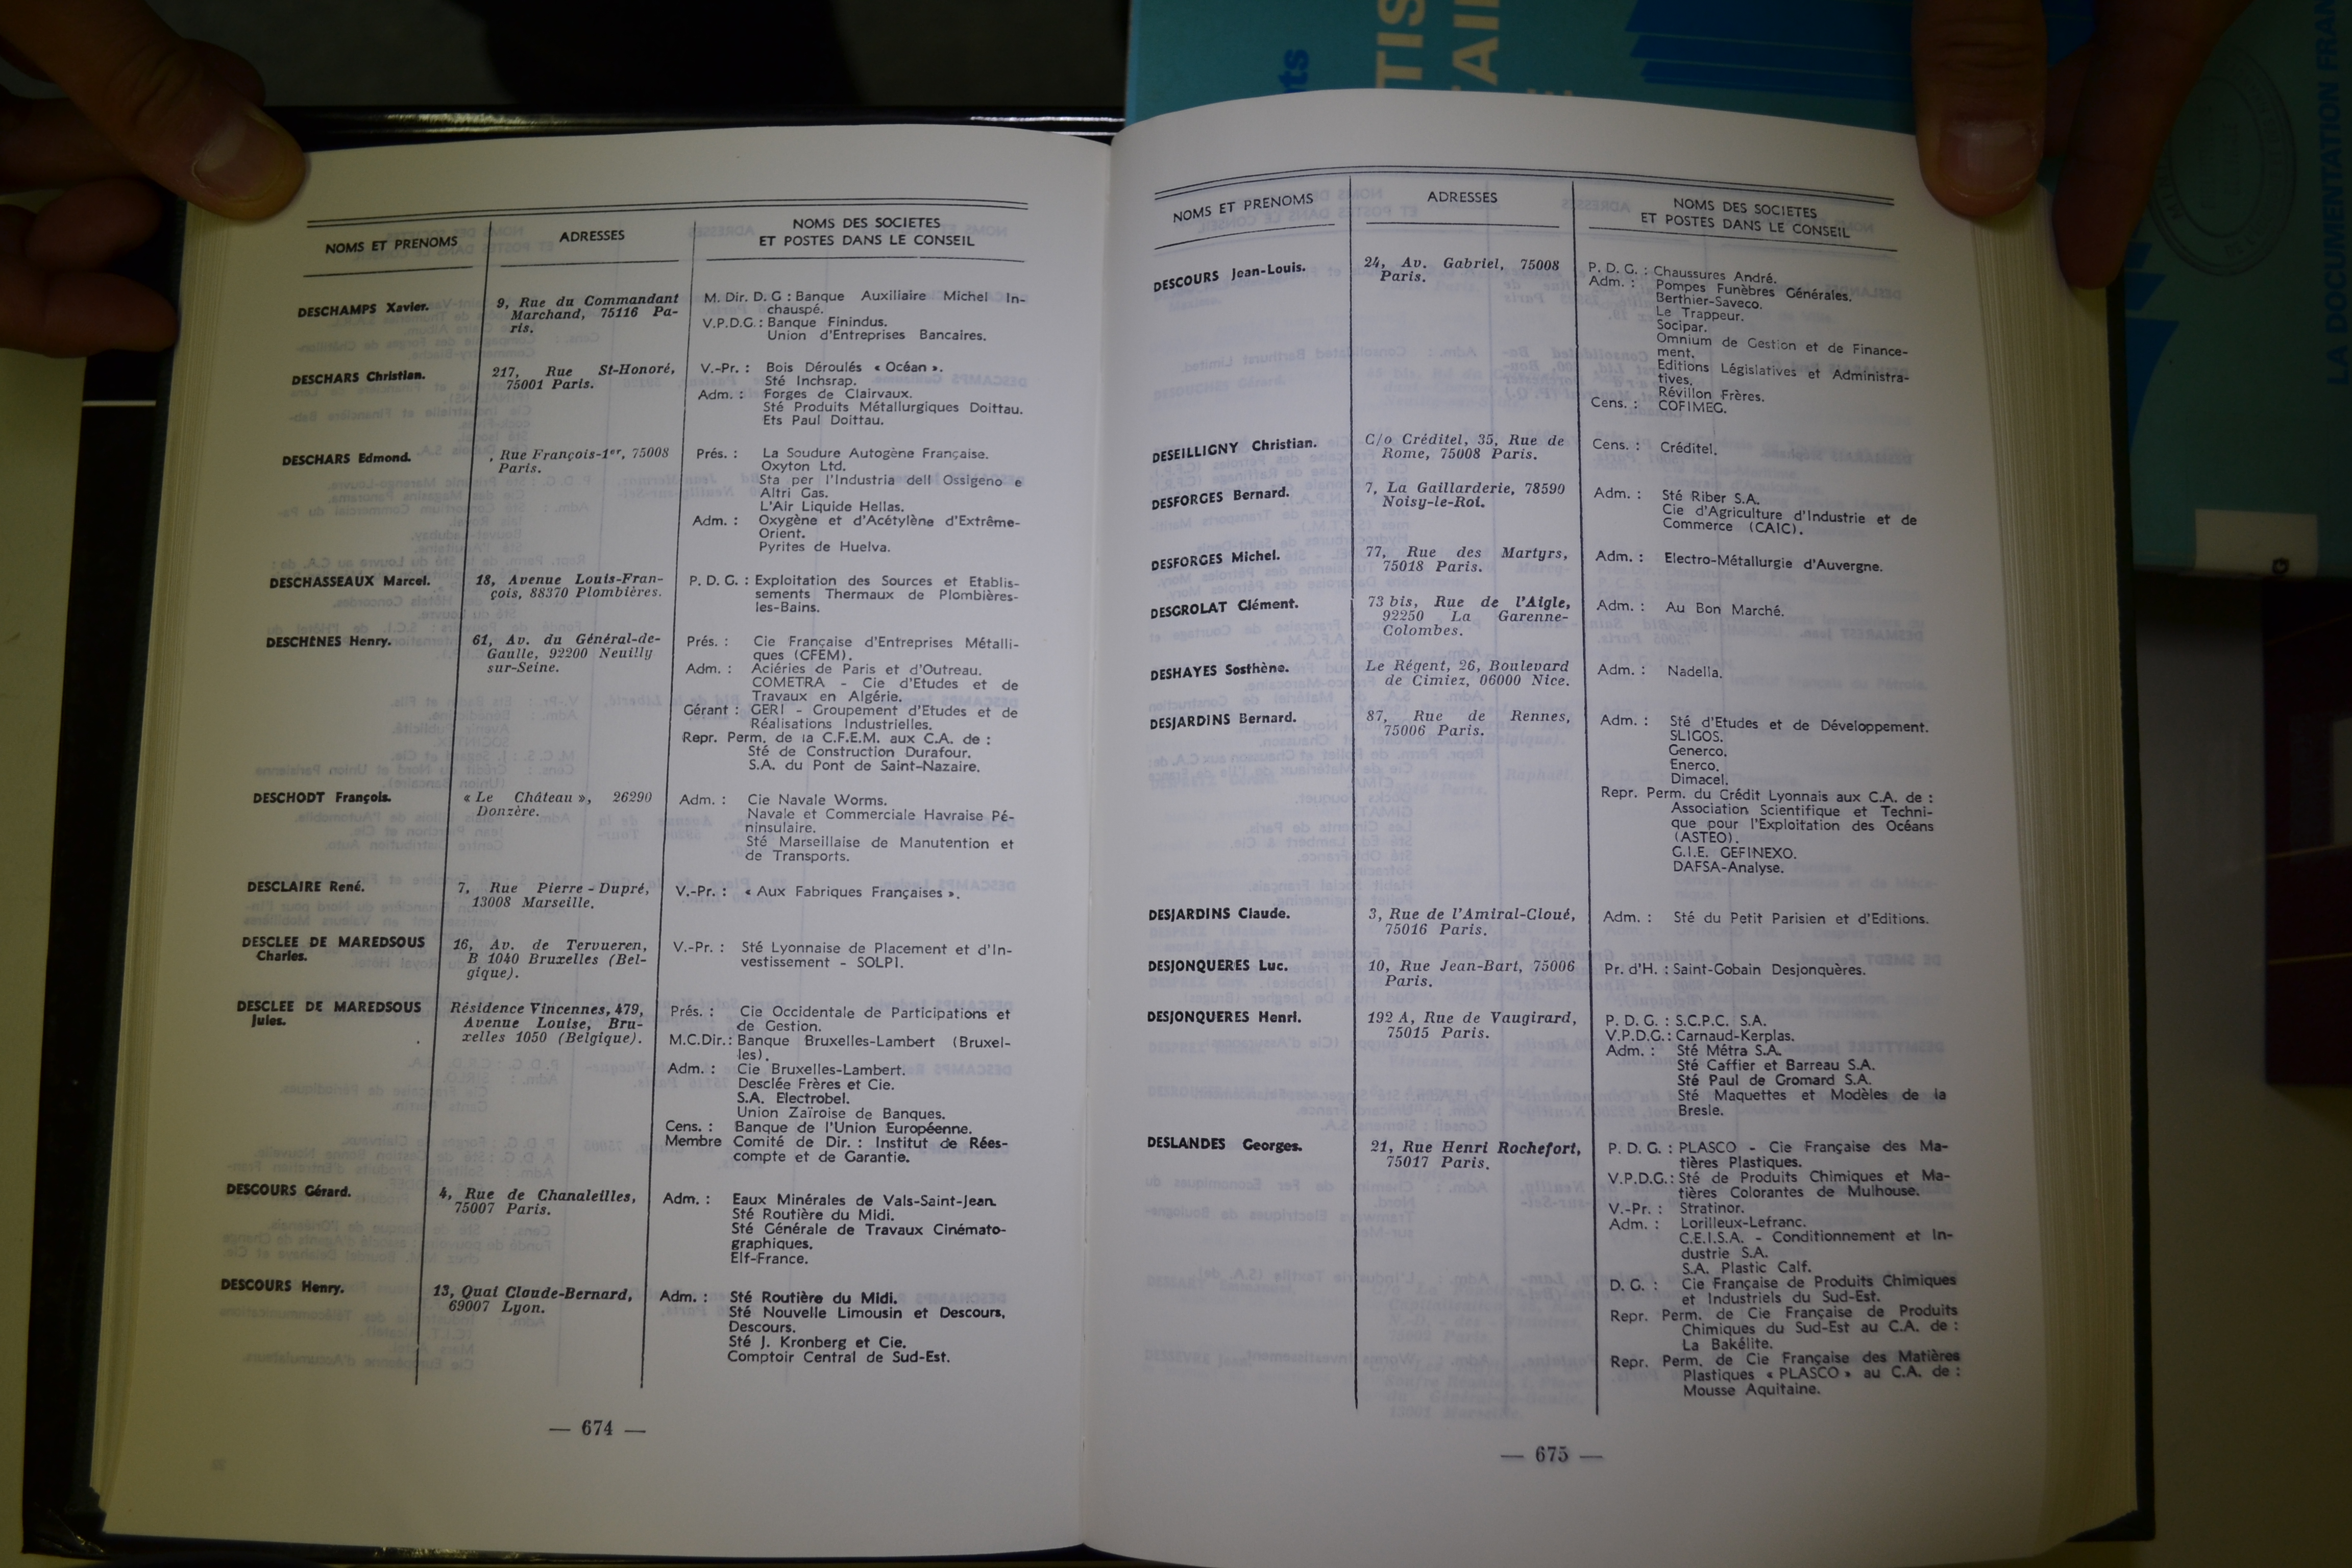 NOMS ET PRENOMS
ADRESSES
NOMS DES SOCIETES
ET POSTES DANS LE CONSEIL
DESCHAMPS Xavier.
9, Rue du Commandant
Marchand, 75116 Pa-
ris.
M. Dir. D. G : Banque Auxiliaire Michel In-
chauspé.
V.P.D.G. : Banque Finindus.
Union d'Entreprises Bancaires.
DESCHARS Christian.
217, Rue St-Honoré,
75001 Paris.
V.-Pr. : Bois Déroulés « Océan ».
Sté Inchsrap.
Adm. : Forges de Clairvaux.
Sté Produits Métallurgiques Doittau.
Ets Paul Doittau.
DESCHARS Edmond.
, Rue François-1er, 75008
Paris.
Prés. : La Soudure Autogène Française.
Oxyton Ltd.
Sta per l'Industria dell Ossigeno e
Altri Gas.
L'Air Liquide Hellas.
Adm. : Oxygène et d'Acétylène d'Extrême-
Orient.
Pyrites de Huelva.
DESCHASSEAUX Marcel.
18, Avenue Louis-Fran-
çois, 88370 Plombières.
P. D. G. : Exploitation des Sources et Etablis-
sements Thermaux de Plombières-
les-Bains.
DESCHENES Henry.
61, Av. du Général-de-
Gaulle, 92200 Neuilly
sur-Seine.
Prés. : Cie Française d'Entreprises Métalli-
ques (CFEM).
Adm. : Aciéries de Paris et d'Outreau.
COMETRA - Cie d'Etudes et de
Travaux en Algérie.
Gérant : GERI - Groupement d'Etudes et de
Réalisations Industrielles.
Repr. Perm. de la C.F.E.M. aux C.A. de :
Sté de Construction Durafour.
S.A. du Pont de Saint-Nazaire.
DESCHODT François.
« Le Château », 26290
Donzère.
Adm. : Cie Navale Worms.
Navale et Commerciale Havraise Pé-
ninsulaire.
Sté Marseillaise de Manutention et
de Transports.
DESCLAIRE René.
7, Rue Pierre-Dupré,
13008 Marseille.
V.-Pr. : « Aux Fabriques Françaises ».
DESCLEE DE MAREDSOUS
Charles.
16, Av. de Tervueren,
B 1040 Bruxelles (Bel-
gique).
V.-Pr. : Sté Lyonnaise de Placement et d'In-
vestissement - SOLPI.
DESCLEE DE MAREDSOUS
Jules.
Résidence Vincennes, 479,
Avenue Louise, Bru-
xelles 1050 (Belgique).
Prés. : Cie Occidentale de Participations et
de Gestion.
M.C.Dir.: Banque Bruxelles-Lambert (Bruxel-
les).
Adm. : Cie Bruxelles-Lambert.
Desclée Frères et Cie.
S.A. Electrobel.
Union Zaïroise de Banques.
Cens. : Banque de l'Union Européenne.
Membre Comité de Dir. : Institut de Rées-
compte et de Garantie.
DESCOURS Gérard.
4, Rue de Chanaleilles,
75007 Paris.
Adm. : Eaux Minérales de Vals-Saint-Jean.
Sté Routière du Midi.
Sté Générale de Travaux Cinémato-
graphiques.
Elf-France.
DESCOURS Henry.
13, Quai Claude-Bernard,
69007 Lyon.
Adm. : Sté Routière du Midi.
Sté Nouvelle Limousin et Descours,
Descours.
Sté J. Kronberg et Cie.
Comptoir Central de Sud-Est.
— 674 —
NOMS ET PRENOMS
ADRESSES
NOMS DES SOCIETES
ET POSTES DANS LE CONSEIL
DESCOURS Jean-Louis.
24, Av. Gabriel, 75008
Paris.
P. D. G. : Chaussures André.
Adm. : Pompes Funèbres Générales.
Berthier-Saveco.
Le Trappeur.
Socipar.
Omnium de Gestion et de Finance-
ment.
Editions Législatives et Administra-
tives.
Révillon Frères.
Cens. : COFIMEG.
DESEILLIGNY Christian.
C/o Créditel, 35, Rue de
Rome, 75008 Paris.
Cens. : Créditel.
DESFORGES Bernard.
7, La Gaillarderie, 78590
Noisy-le-Roi.
Adm. : Sté Riber S.A.
Cie d'Agriculture d'Industrie et de
Commerce (CAIC).
DESFORGES Michel.
77, Rue des Martyrs,
75018 Paris.
Adm. : Electro-Métallurgie d'Auvergne.
DESGROLAT Clément.
73 bis, Rue de l'Aigle,
92250 La Garenne-
Colombes.
Adm. : Au Bon Marché.
DESHAYES Sosthène.
Le Régent, 26, Boulevard
de Cimiez, 06000 Nice.
Adm. : Nadella.
DESJARDINS Bernard.
87, Rue de Rennes,
75006 Paris.
Adm. : Sté d'Etudes et de Développement.
SLIGOS.
Generco.
Enerco.
Dimacel.
Repr. Perm. du Crédit Lyonnais aux C.A. de :
Association Scientifique et Techni-
que pour l'Exploitation des Océans
(ASTEO).
G.I.E. GEFINEXO.
DAFSA-Analyse.
DESJARDINS Claude.
3, Rue de l'Amiral-Cloué,
75016 Paris.
Adm. : Sté du Petit Parisien et d'Editions.
DESJONQUERES Luc.
10, Rue Jean-Bart, 75006
Paris.
Pr. d'H. : Saint-Gobain Desjonquères.
DESJONQUERES Henri.
192 A, Rue de Vaugirard,
75015 Paris.
P. D. G. : S.C.P.C. S.A.
V.P.D.G. : Carnaud-Kerplas.
Adm. : Sté Métra S.A.
Sté Caffier et Barreau S.A.
Sté Paul de Gromard S.A.
Sté Maquettes et Modèles de la
Bresle.
DESLANDES Georges.
21, Rue Henri Rochefort,
75017 Paris.
P. D. G. : PLASCO - Cie Française des Ma-
tières Plastiques.
V.P.D.G.: Sté de Produits Chimiques et Ma-
tières Colorantes de Mulhouse.
V.-Pr. : Stratinor.
Adm. : Lorilleux-Lefranc.
C.E.I.S.A. - Conditionnement et In-
dustrie S.A.
S.A. Plastic Calf.
D. G. : Cie Française de Produits Chimiques
et Industriels du Sud-Est.
Repr. Perm. de Cie Française de Produits
Chimiques du Sud-Est au C.A. de :
La Bakélite.
Repr. Perm. de Cie Française des Matières
Plastiques « PLASCO » au C.A. de :
Mousse Aquitaine.
— 675 —
LA DOCUMENTATION FRAN